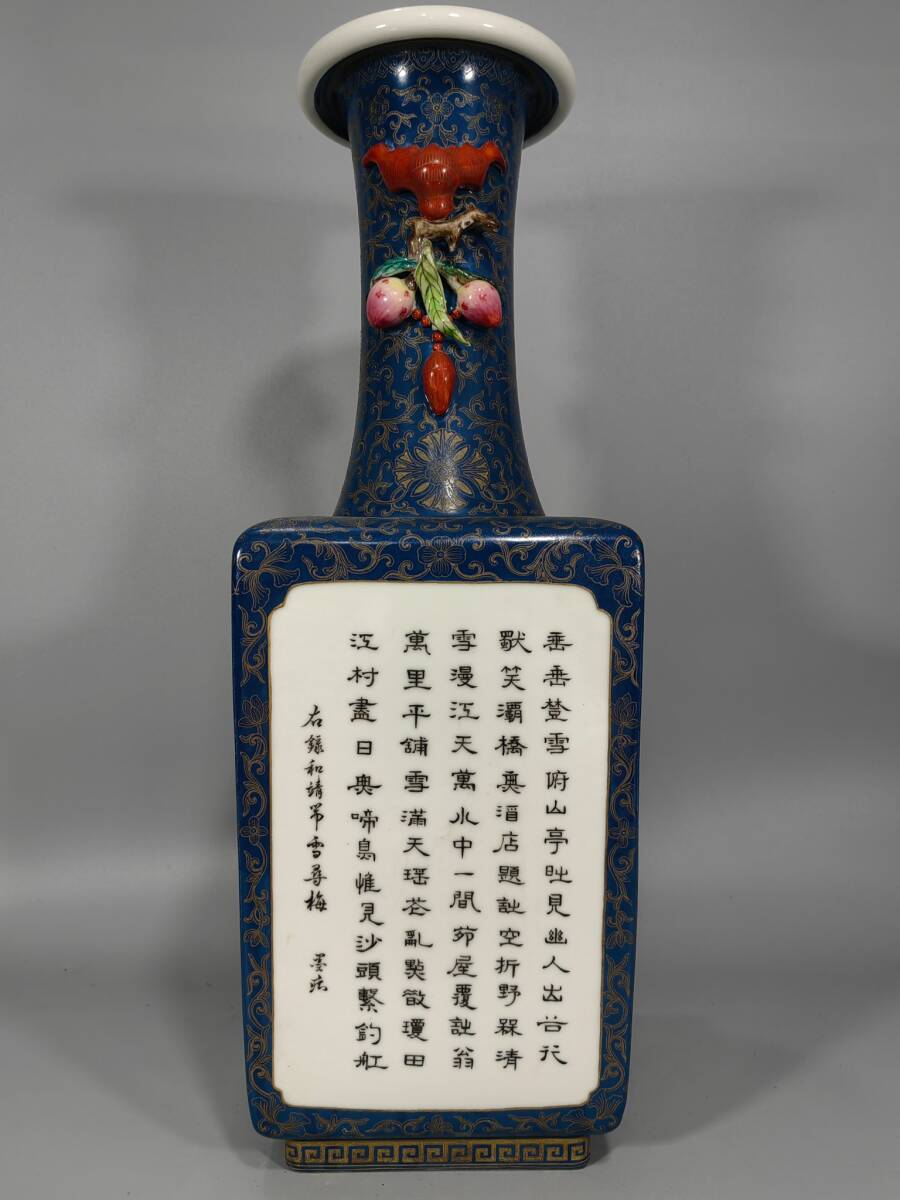 垂垂登雪俯山亭時見幽人出谷行
笑灞橋奥酒店題詩空折野槑清
雪漫江天萬水中一間茆屋覆詩翁
萬里平舖雪滿天瑶花亂點散瓊田
江村盡日奥啼鳥惟見沙頭繫釣舡
右錄和靖帶雪尋梅
墨